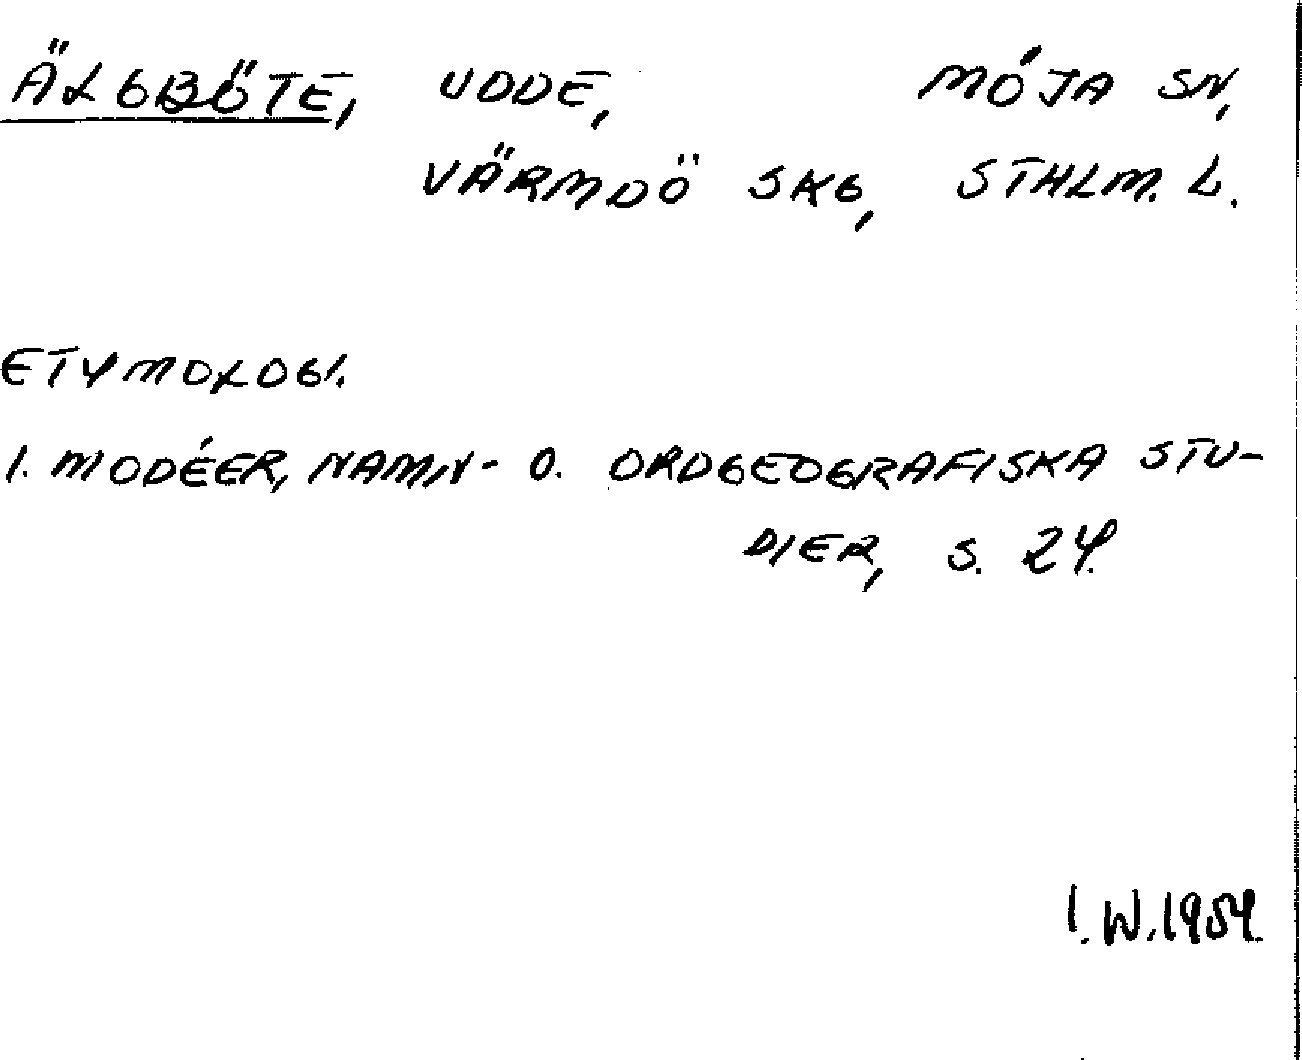 ÄLGBÖTE, UDDE, MÖJA SN,
VÄRMDÖ SKG, STHLM. L.
ETYMOLOGI.
I. MODÉER, NAMN- O. ORDGEOGRAFISKA STU-
DIER, S. 24.
I. W. 1954.